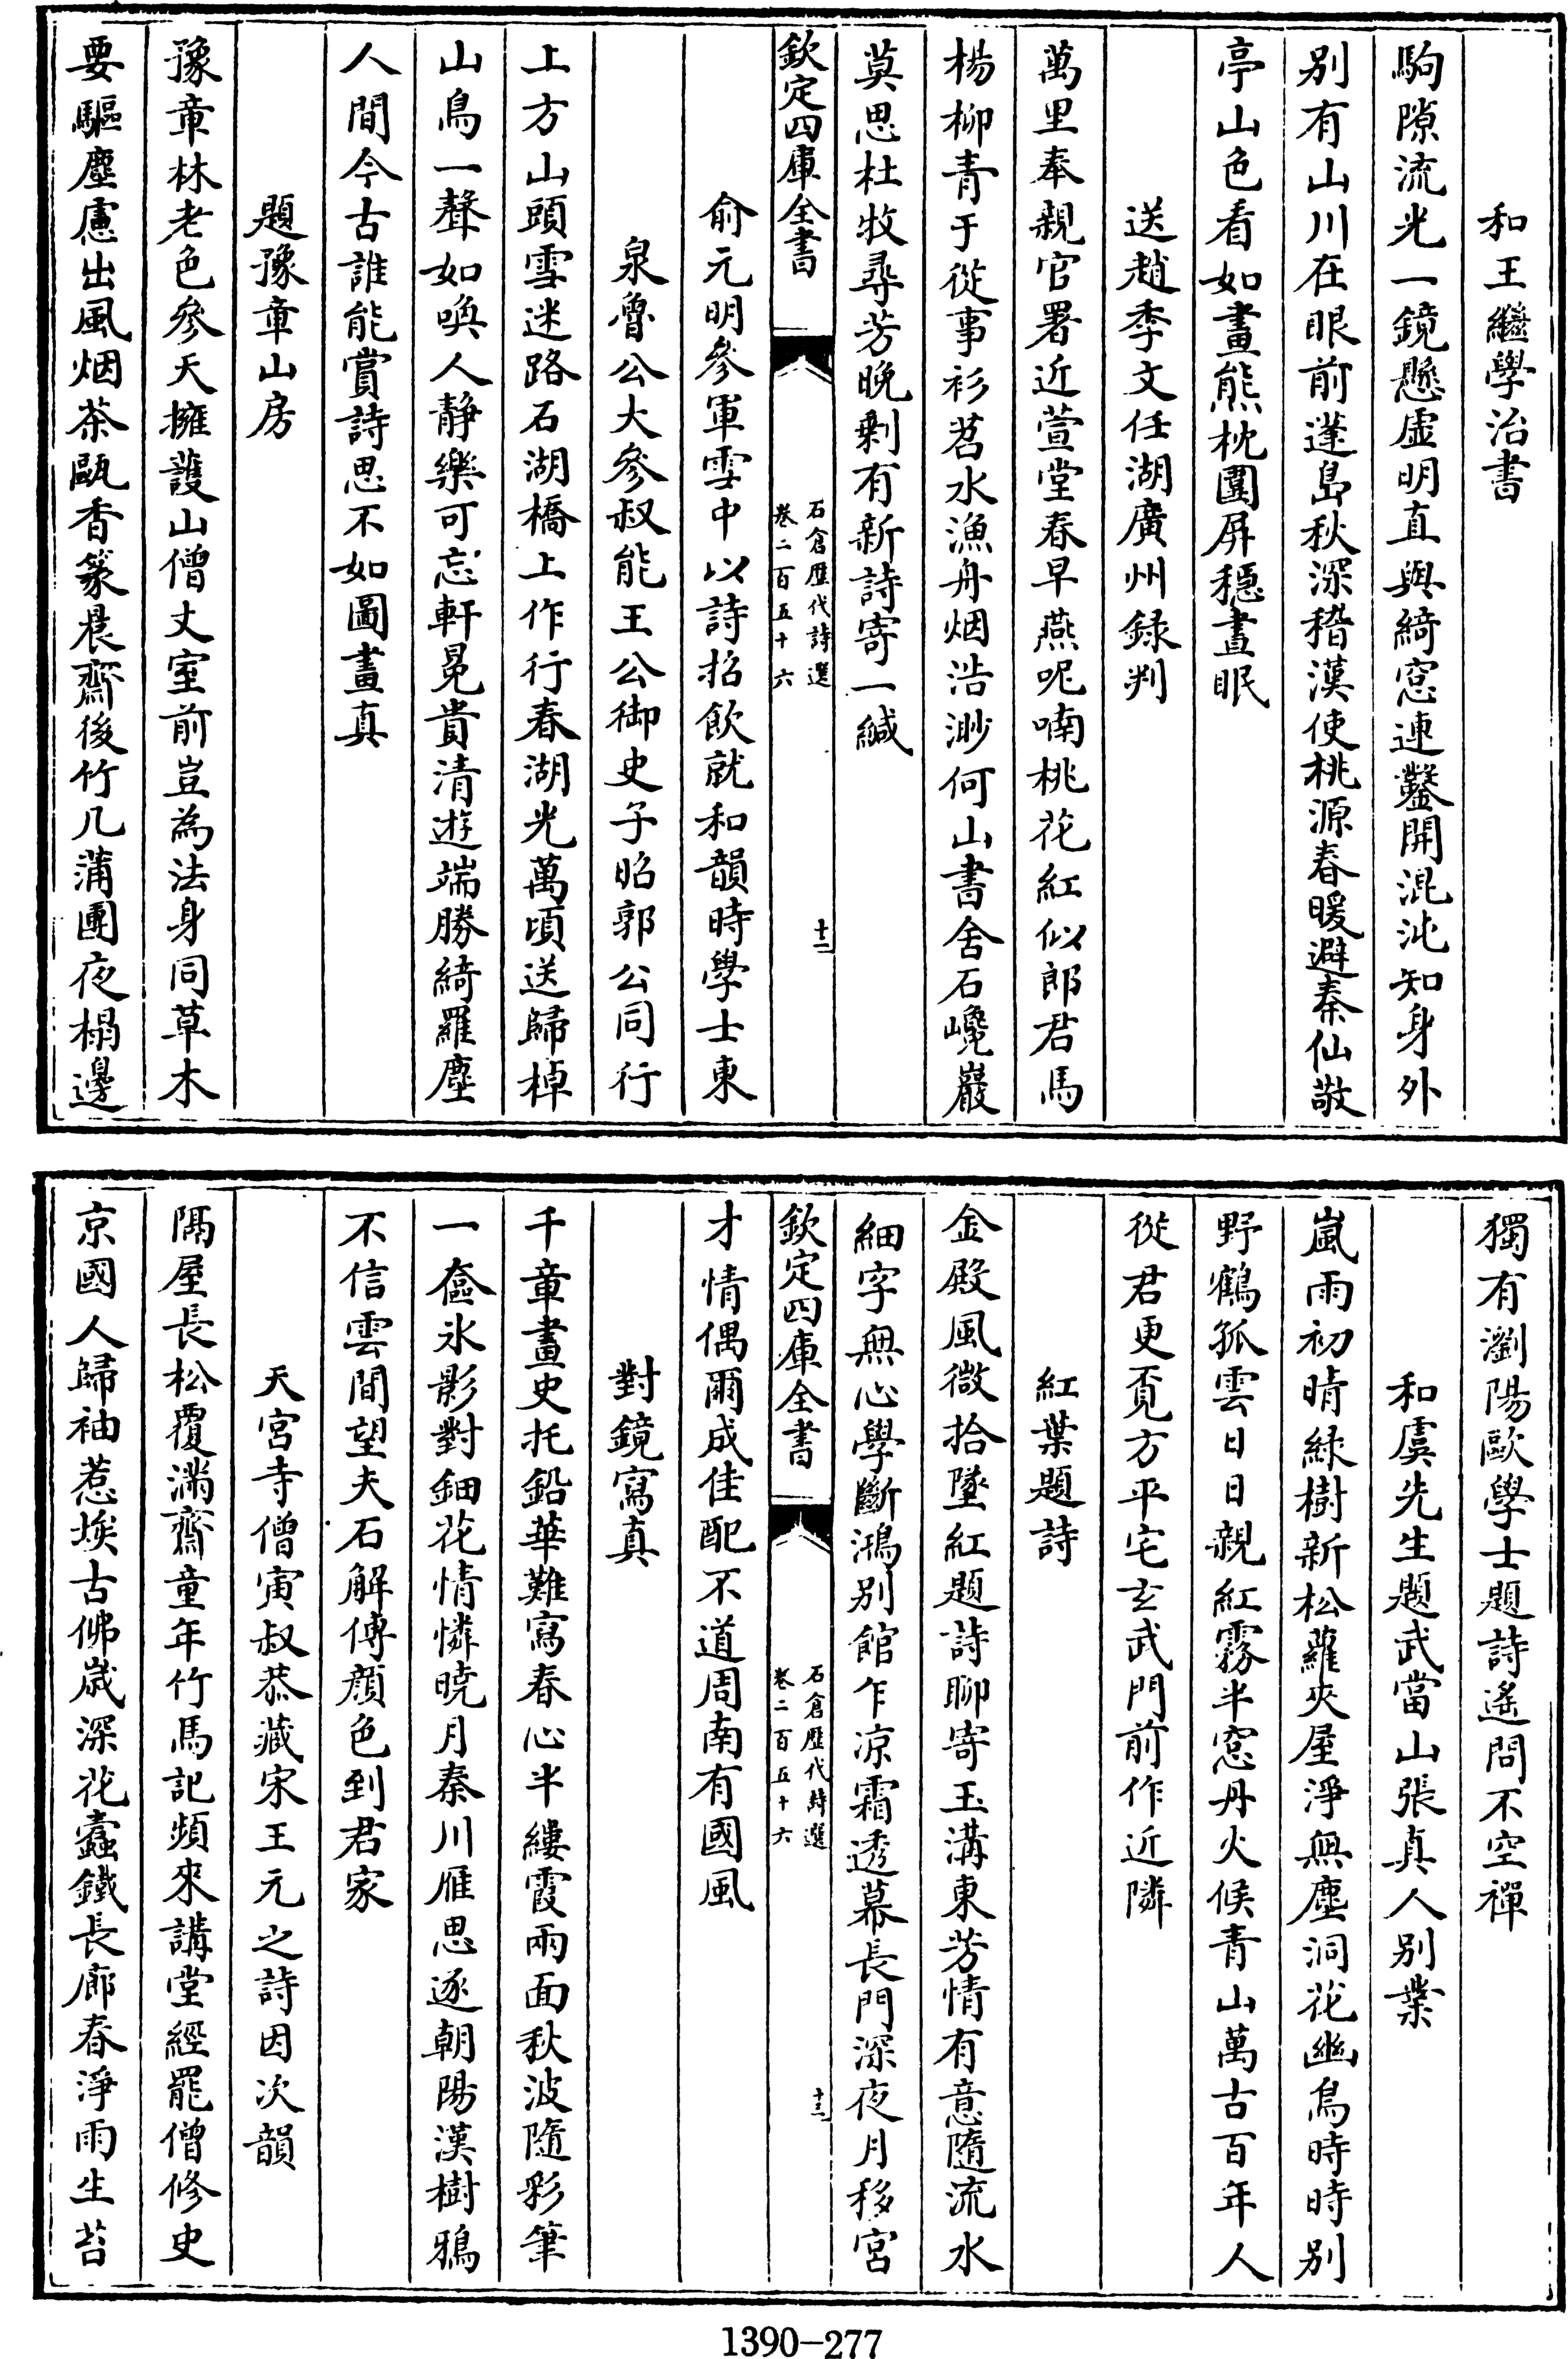 和王繼學治書
駒隙流光一鏡懸虛明直與綺窓連鑿開混沌知身外
别有山川在眼前蓬島秋深稽漢使桃源春暖避秦仙敬
亭山色看如畫熊枕圍屏穩晝眠
送趙季文任湖廣州録判
萬里奉親官署近萱堂春早燕呢喃桃花紅似郎君馬
楊柳青于從事衫苕水漁舟烟浩渺何山書舍石巉巖
莫思杜牧尋芳晚剩有新詩寄一緘
欽定四庫全書
石倉歷代詩選
卷二百五十六
十二
俞元明參軍雪中以詩招飲就和韻時學士東
泉魯公大參叔能王公御史子昭郭公同行
上方山頭雪迷路石湖橋上作行春湖光萬頃送歸棹
山鳥一聲如喚人静樂可忘軒冕貴清遊端勝綺羅塵
人間今古誰能賞詩思不如圖畫真
題豫章山房
豫章林老色參天擁護山僧丈室前豈為法身同草木
要驅塵慮出風烟茶甌香篆晨齋後竹几蒲團夜榻邊
獨有瀏陽歐學士題詩遙問不空禪
和虞先生題武當山張真人别業
嵐雨初晴緑樹新松蘿夾屋淨無塵洞花幽鳥時時别
野鶴孤雲日日親紅霧半窓丹火候青山萬古百年人
從君更覓方平宅玄武門前作近隣
紅葉題詩
金殿風微拾墜紅題詩聊寄玉溝東芳情有意隨流水
細字無心學斷鴻别館乍凉霜透幕長門深夜月移宮
欽定四庫全書
石倉歷代詩選
卷二百五十六
十三
才情偶爾成佳配不道周南有國風
對鏡寫真
千章畫史托鉛華難寫春心半縷霞兩面秋波隨彩筆
一奩氷影對鈿花情憐曉月秦川雁思逐朝陽漢樹鴉
不信雲間望夫石解傳顔色到君家
天宮寺僧寅叔恭藏宋王元之詩因次韻
隔屋長松覆滿齋童年竹馬記頻來講堂經罷僧修史
京國人歸袖惹埃古佛歲深花蠹鐵長廊春淨雨生苔
1390-277